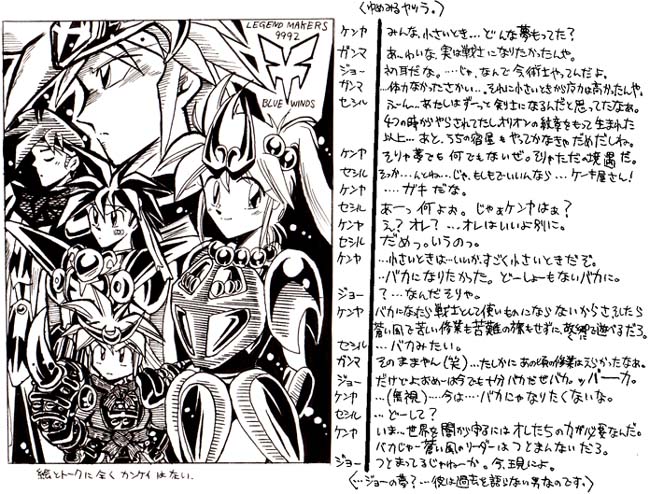 LEGEND MAKERS
9992
BLUE WINDS
絵とトークに全くカンケイはない.
(ゆめみるヤツら。)
ケンヤ みんな、小さいとき…どんな夢もってた?
ガンマ あ〜わいな、実は戦士になりたかったんや。
ジョー 初耳だな。…じゃ、なんで今術士やってんだよ。
ガンマ …体力なかったさかい…。それに小さいときから力は高かったんや。
セシル ふーん…あたしはずーっと剣士になるんだと思ってたなぁ。
4つの時からやらされてたしオリオンの紋章をもって生まれた
以上…あと、うちの宿星もやってかなきゃだめだしね。
ケンヤ そりゃ夢でも何でもないぜ。そりゃただの境遇だ。
セシル そっか…んとね…じゃ、もしもでいいんなら…ケーキ屋さん!
ケンヤ …ガキだな。
セシル あーっ何よぉ。じゃぁケンヤはぁ?
ケンヤ え?オレ?…オレはいいよ別に。
セシル だめっ。いうのっ。
ケンヤ …小さいときは…いいか、すごく小さいときだぞ。
…バカになりたかった。どーしょーもないバカに。
ジョー ?…なんだそりゃ。
ケンヤ バカになったら戦士として使いものにならないからさ。そしたら
蒼い風で苦しい修業も苦難の旅もせずに、故郷で遊べるだろ。
セシル …バカみたい。
ガンマ そのまんまやん(笑)…たしかにあの頃の修業はえらかったなぁ。
ジョー だけどよおめーは今でも十分バカだぜバカ。ッバーーカ。
ケンヤ …(無視)…今は…バカにゃなりたくないな。
セシル …どーして?
ケンヤ いま…世界を闇から守るにはオレたちの力が必要なんだ。
バカじゃ蒼い風のリーダーはつとまんないだろ。
ジョー つとまってるじゃねーか。今、現によ。
(…ジョーの夢?…彼は過去を語らない男なのです。)